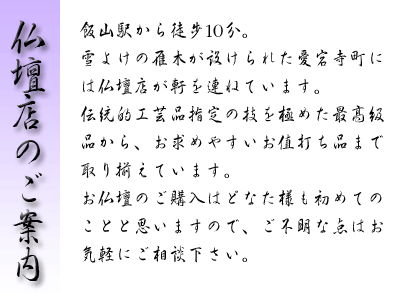 仏壇店のご案内
飯山駅から徒歩10分。
雪よけの雁木が設けられた愛宕寺町に
は仏壇店が軒を連ねています。
伝統的工芸品指定の技を極めた最高級
品から、お求めやすいお値打ち品まで
取り揃えています。
お仏壇のご購入はどなた様も初めての
ことと思いますので、ご不明な点はお
気軽にご相談下さい。